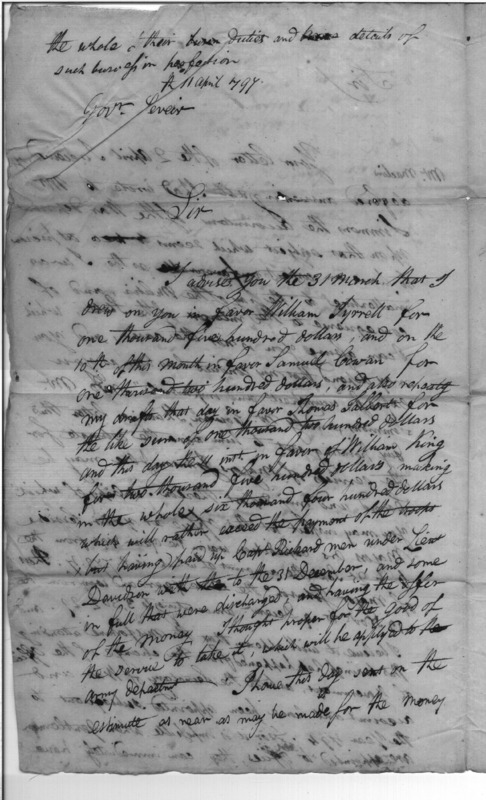 the whole of their duties and details of
such business in perfection
11 April 1797.
Govr. Sevier
Sir
I advised you the 31 March that I
drew on you in favor William Tyrrell for
one thousand five hundred dollars, and on the
10th of this month in favor Samuel Cowan for
one thousand two hundred dollars, and also
my draft that day in favor Thomas Talbott for
the like sum of one thousand two hundred dollars
and this day the 11 inst in favor of William King
for two thousand five hundred dollars making
in the whole six thousand four hundred dollars
which will rather exceed the payment of the
but having paid up Capt. Rickard men under Lieut
Davidson to the 31 December, and some
in full that were discharged, and having the offer
of the money I thought proper for the good of
the service to take it which will be applyed to the
army I have this day sent on the
estimate as near as may be made for the money